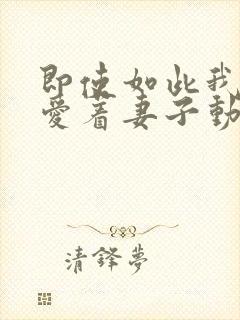 即使如此我
愛着妻子動
清鋒夢